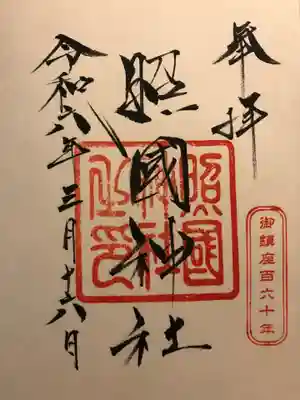 奉拝
照國神社
照國神社之印
御鎮座百六十年
令和六年三月十六日